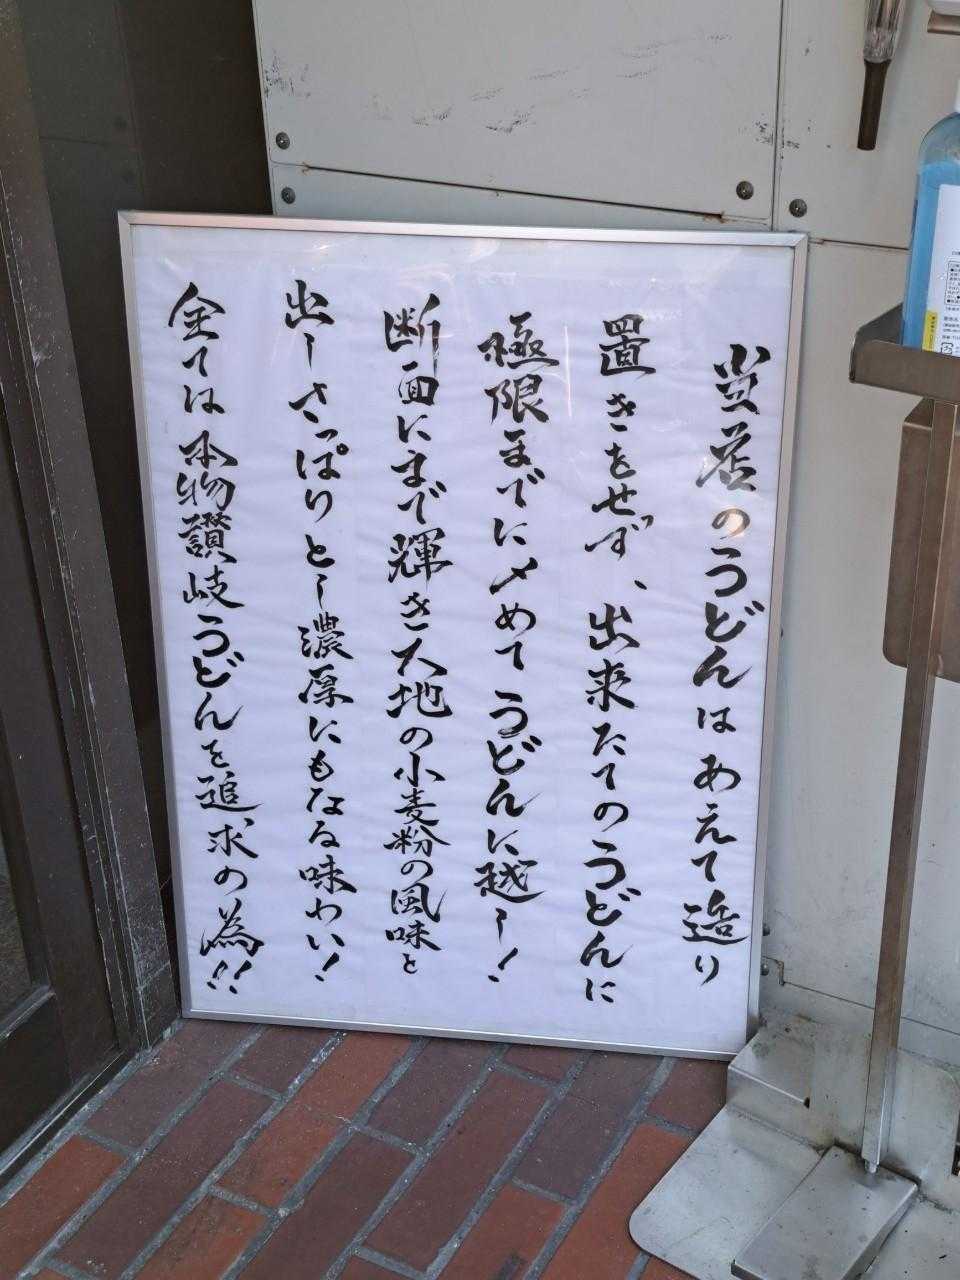 当店のうどんはあえて造り
置きをせず、出来たてのうどんに
極限までに〆めてうどんに越し!
断面にまで輝き大地の小麦粉の風味と
出しさっぱりとし濃厚にもなる味わい!
全ては本物讃岐うどんを追求の為!!